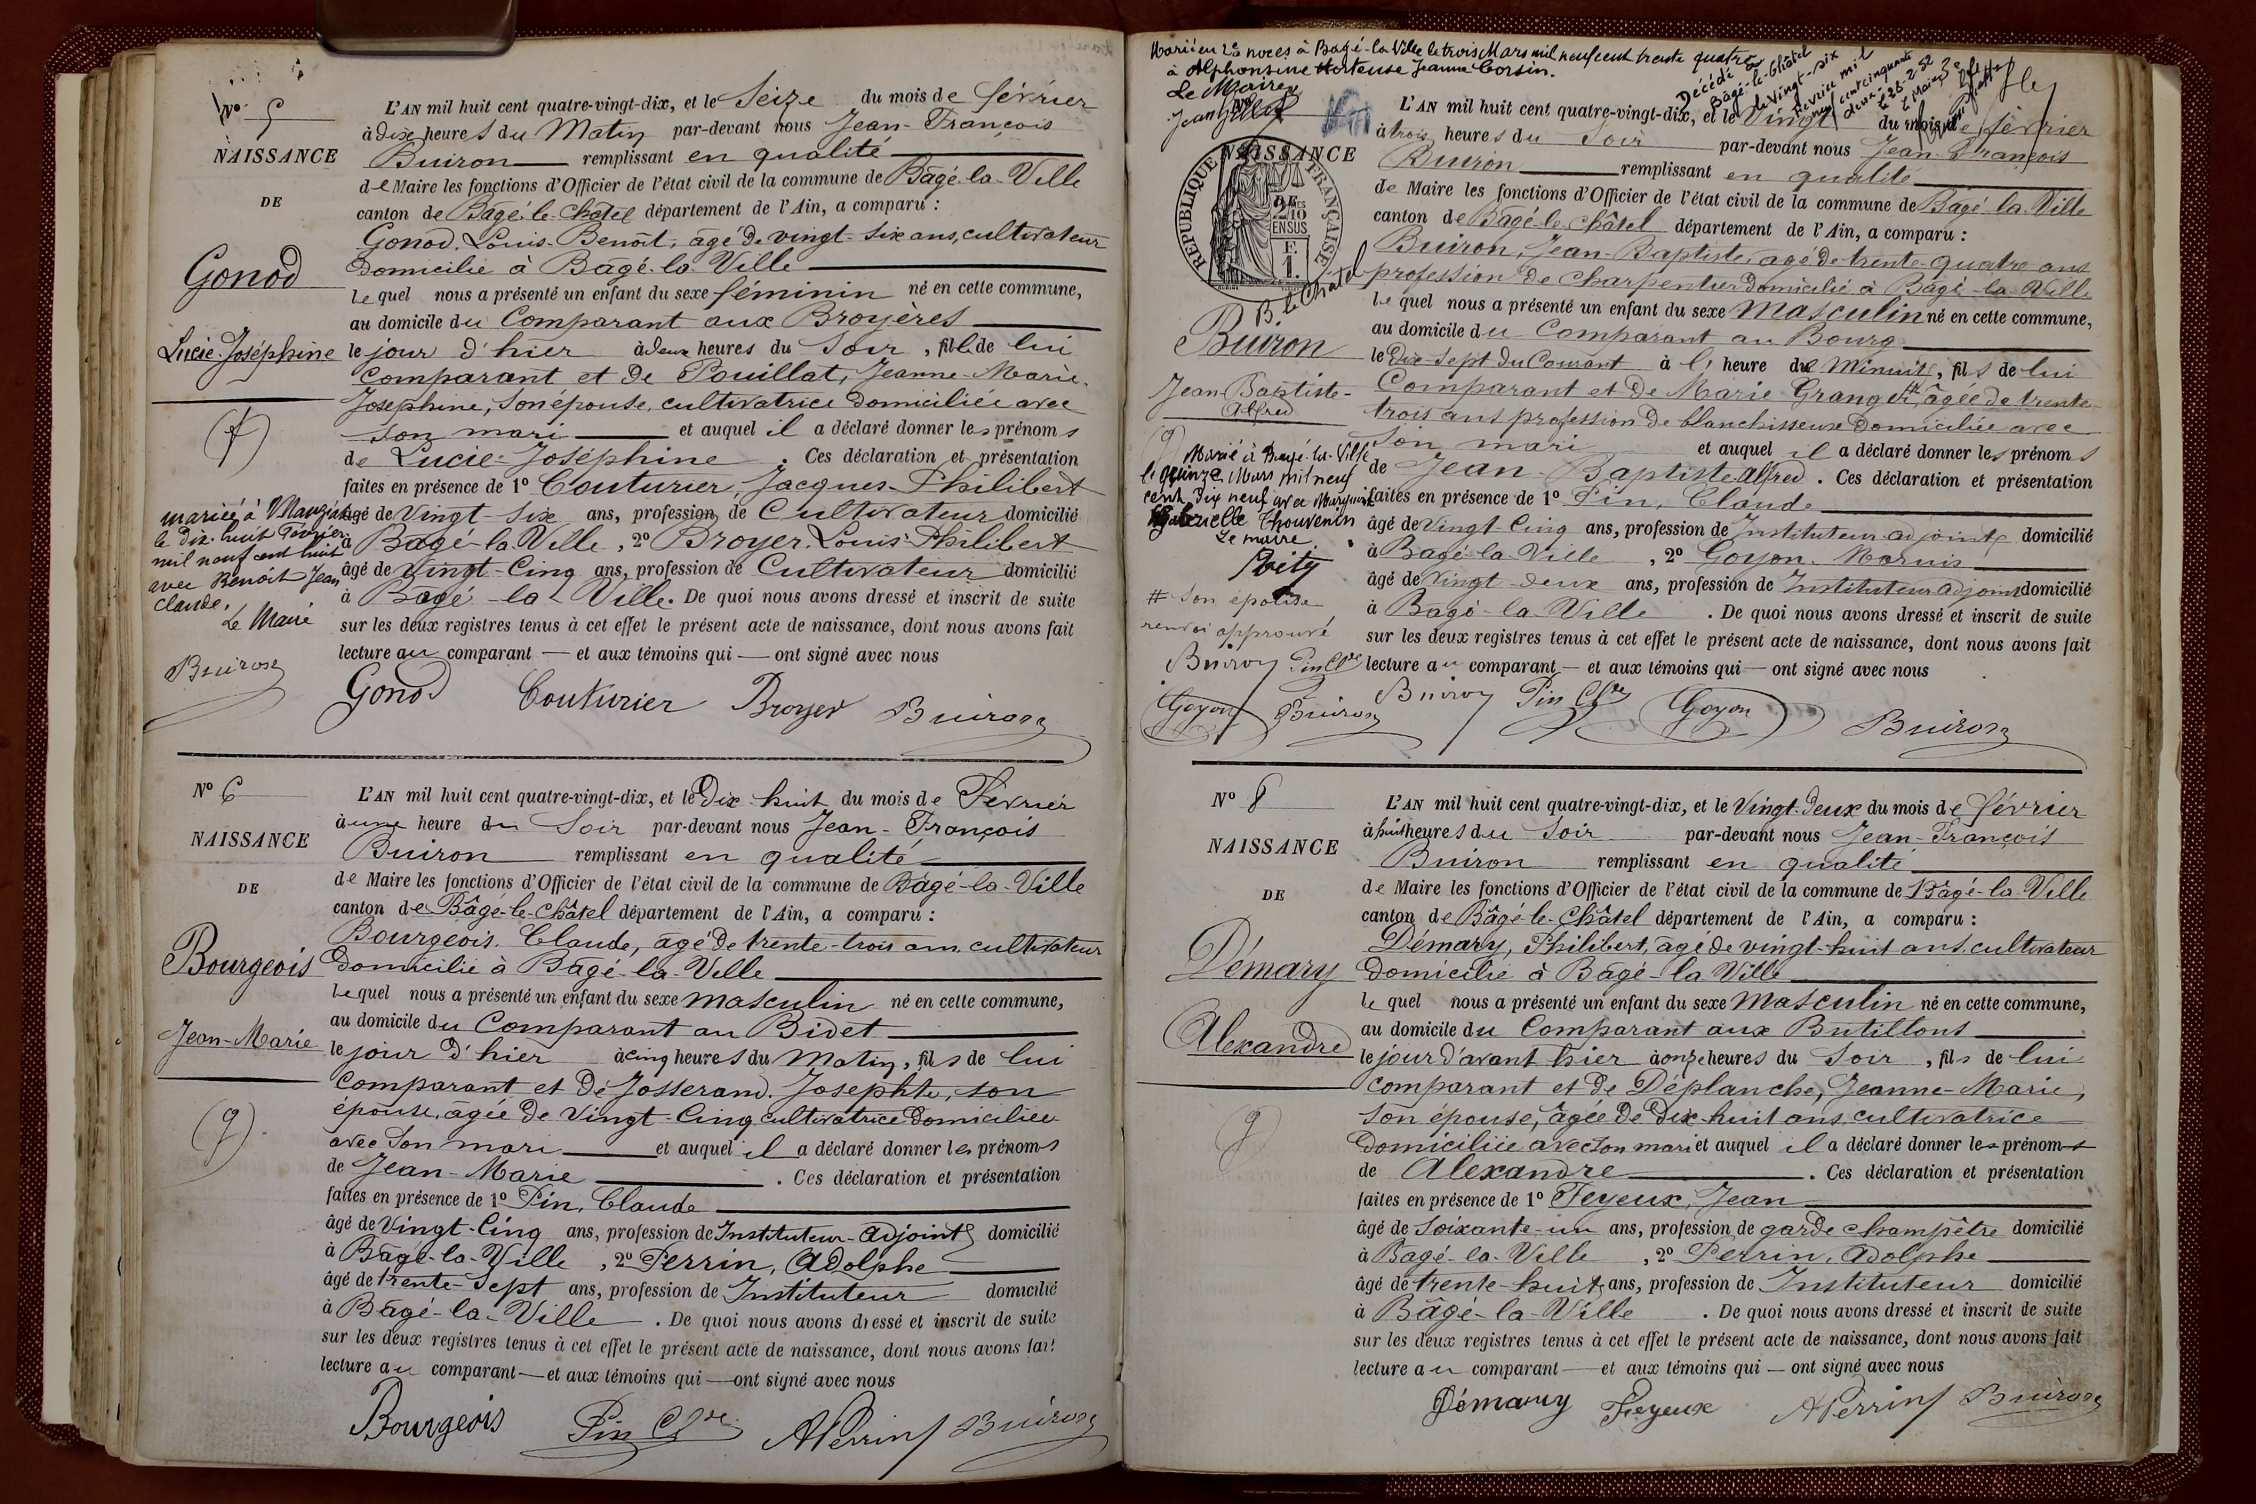 No 5
NAISSANCE
DE
Gonod
Lucie-Joséphine
mariée à Manziat
le dix-huit Février
mil neuf cent huit
avec Benoît Jean
Claude.
Le Maire
Buiron
L'AN mil huit cent quatre-vingt-dix, et le Seize du mois de février
à dix heures du Matin par-devant nous Jean-François
Buiron remplissant en qualité
de Maire les fonctions d'Officier de l'état civil de la commune de Bâgé-la-Ville
canton de Bâgé-le-Châtel département de l'Ain, a comparu :
Gonod, Louis-Benoît, âgé de vingt-six ans, cultivateur
domicilié à Bâgé-la-Ville
lequel nous a présenté un enfant du sexe féminin né en cette commune,
au domicile du Comparant aux Broyères
le jour d'hier à deux heures du Soir, fille de lui
comparant et de Pouillat, Jeanne-Marie-
Josephine, son épouse, cultivatrice domiciliée avec
son mari et auquel il a déclaré donner les prénoms
de Lucie-Joséphine. Ces déclaration et présentation
faites en présence de 1º Couturier, Jacques-Philibert
âgé de Vingt-six ans, profession de Cultivateur domicilié
à Bâgé-la-Ville, 2º Broyer, Louis-Philibert
âgé de Vingt-Cinq ans, profession de Cultivateur domicilié
à Bâgé-la-Ville. De quoi nous avons dressé et inscrit de suite
sur les deux registres tenus à cet effet le présent acte de naissance, dont nous avons fait
lecture au comparant — et aux témoins qui — ont signé avec nous
Gonod Couturier Broyer Buiron
No 6
NAISSANCE
DE
Bourgeois
Jean-Marie
(g)
L'AN mil huit cent quatre-vingt-dix, et le Dix-huit du mois de Février
à une heure du Soir par-devant nous Jean-François
Buiron remplissant en qualité
de Maire les fonctions d'Officier de l'état civil de la commune de Bâgé-la-Ville
canton de Bâgé-le-Châtel département de l'Ain, a comparu :
Bourgeois, Claude, âgé de trente-trois ans, cultivateur
domicilié à Bâgé-la-Ville
lequel nous a présenté un enfant du sexe masculin né en cette commune,
au domicile du Comparant au Bidet
le jour d'hier à cinq heures du Matin, fils de lui
comparant et de Josserand, Josephte, son
épouse, âgée de vingt-Cinq cultivatrice domiciliée
avec son mari et auquel il a déclaré donner les prénoms
de Jean-Marie. Ces déclaration et présentation
faites en présence de 1º Pin, Claude
âgé de Vingt-Cinq ans, profession de Instituteur-adjoint domicilié
à Bâgé-la-Ville, 2º Perrin, Adolphe
âgé de trente-sept ans, profession de Instituteur domicilié
à Bâgé-la-Ville. De quoi nous avons dressé et inscrit de suite
sur les deux registres tenus à cet effet le présent acte de naissance, dont nous avons fait
lecture au comparant — et aux témoins qui — ont signé avec nous
Bourgeois Pin Cde A Perrin Buiron
Marié en 2e noces à Bâgé-la-Ville le trois Mars mil neuf cent trente quatre
à Alphonsine Hortense Jeanne Corsin.
Le Maire
Décédé à
Bâgé-le-Châtel
le Vingt-six
Février mil
neuf cent cinquante
deux
le 28-2-52
Le Maire
NAISSANCE
DE
RÉPUBLIQUE FRANÇAISE
B. le Châtel
Buiron
Jean-Baptiste-
Alfred
(g)
Marié à Bagé-la-Ville
le Quinze Mars mil neuf
cent dix neuf avec Marguerite
Gabrielle Thouvenin
Le maire
# Son épouse
renvoi approuvé
Buiron Pin Cde
Goyon Buiron
L'AN mil huit cent quatre-vingt-dix, et le Vingt du mois de février
à trois heures du Soir par-devant nous Jean-François
Buiron remplissant en qualité
de Maire les fonctions d'Officier de l'état civil de la commune de Bâgé-la-Ville
canton de Bâgé-le-Châtel département de l'Ain, a comparu :
Buiron, Jean-Baptiste, âgé de trente-quatre ans
profession de Charpentier domicilié à Bâgé-la-Ville
lequel nous a présenté un enfant du sexe Masculin né en cette commune,
au domicile du Comparant au Bourg
le Dix-Sept du Courant à l'heure de Minuit, fils de lui
Comparant et de Marie Granger #, âgée de trente-
trois ans profession de blanchisseuse domiciliée avec
son mari et auquel il a déclaré donner les prénoms
de Jean-Baptiste Alfred. Ces déclaration et présentation
faites en présence de 1º Pin, Claude
âgé de Vingt-Cinq ans, profession de Instituteur adjoint domicilié
à Bâgé-la-Ville, 2º Goyon, Marius
âgé de vingt-deux ans, profession de Instituteur adjoint domicilié
à Bâgé-la-Ville. De quoi nous avons dressé et inscrit de suite
sur les deux registres tenus à cet effet le présent acte de naissance, dont nous avons fait
lecture au comparant — et aux témoins qui — ont signé avec nous
Buiron Pin Cde Goyon Buiron
No 8
NAISSANCE
DE
Démary
Alexandre
g
L'AN mil huit cent quatre-vingt-dix, et le Vingt-deux du mois de février
à huit heures du Soir par-devant nous Jean-François
Buiron remplissant en qualité
de Maire les fonctions d'Officier de l'état civil de la commune de Bâgé-la-Ville
canton de Bâgé-le-Châtel département de l'Ain, a comparu :
Démary, Philibert, âgé de vingt-huit ans, cultivateur
domicilié à Bâgé-la-Ville
lequel nous a présenté un enfant du sexe Masculin né en cette commune,
au domicile du Comparant aux Butillons
le jour d'avant hier à onze heures du Soir, fils de lui
comparant et de Déplanche, Jeanne-Marie,
son épouse, âgée de Dix-huit ans, cultivatrice
domiciliée avec son mari et auquel il a déclaré donner les prénoms
de Alexandre. Ces déclaration et présentation
faites en présence de 1º Feyeux, Jean
âgé de Soixante-un ans, profession de garde champêtre domicilié
à Bagé-la-Ville, 2º Perrin, Adolphe
âgé de trente-huit ans, profession de Instituteur domicilié
à Bâgé-la-Ville. De quoi nous avons dressé et inscrit de suite
sur les deux registres tenus à cet effet le présent acte de naissance, dont nous avons fait
lecture au comparant — et aux témoins qui — ont signé avec nous
Démary Feyeux A Perrin Buiron